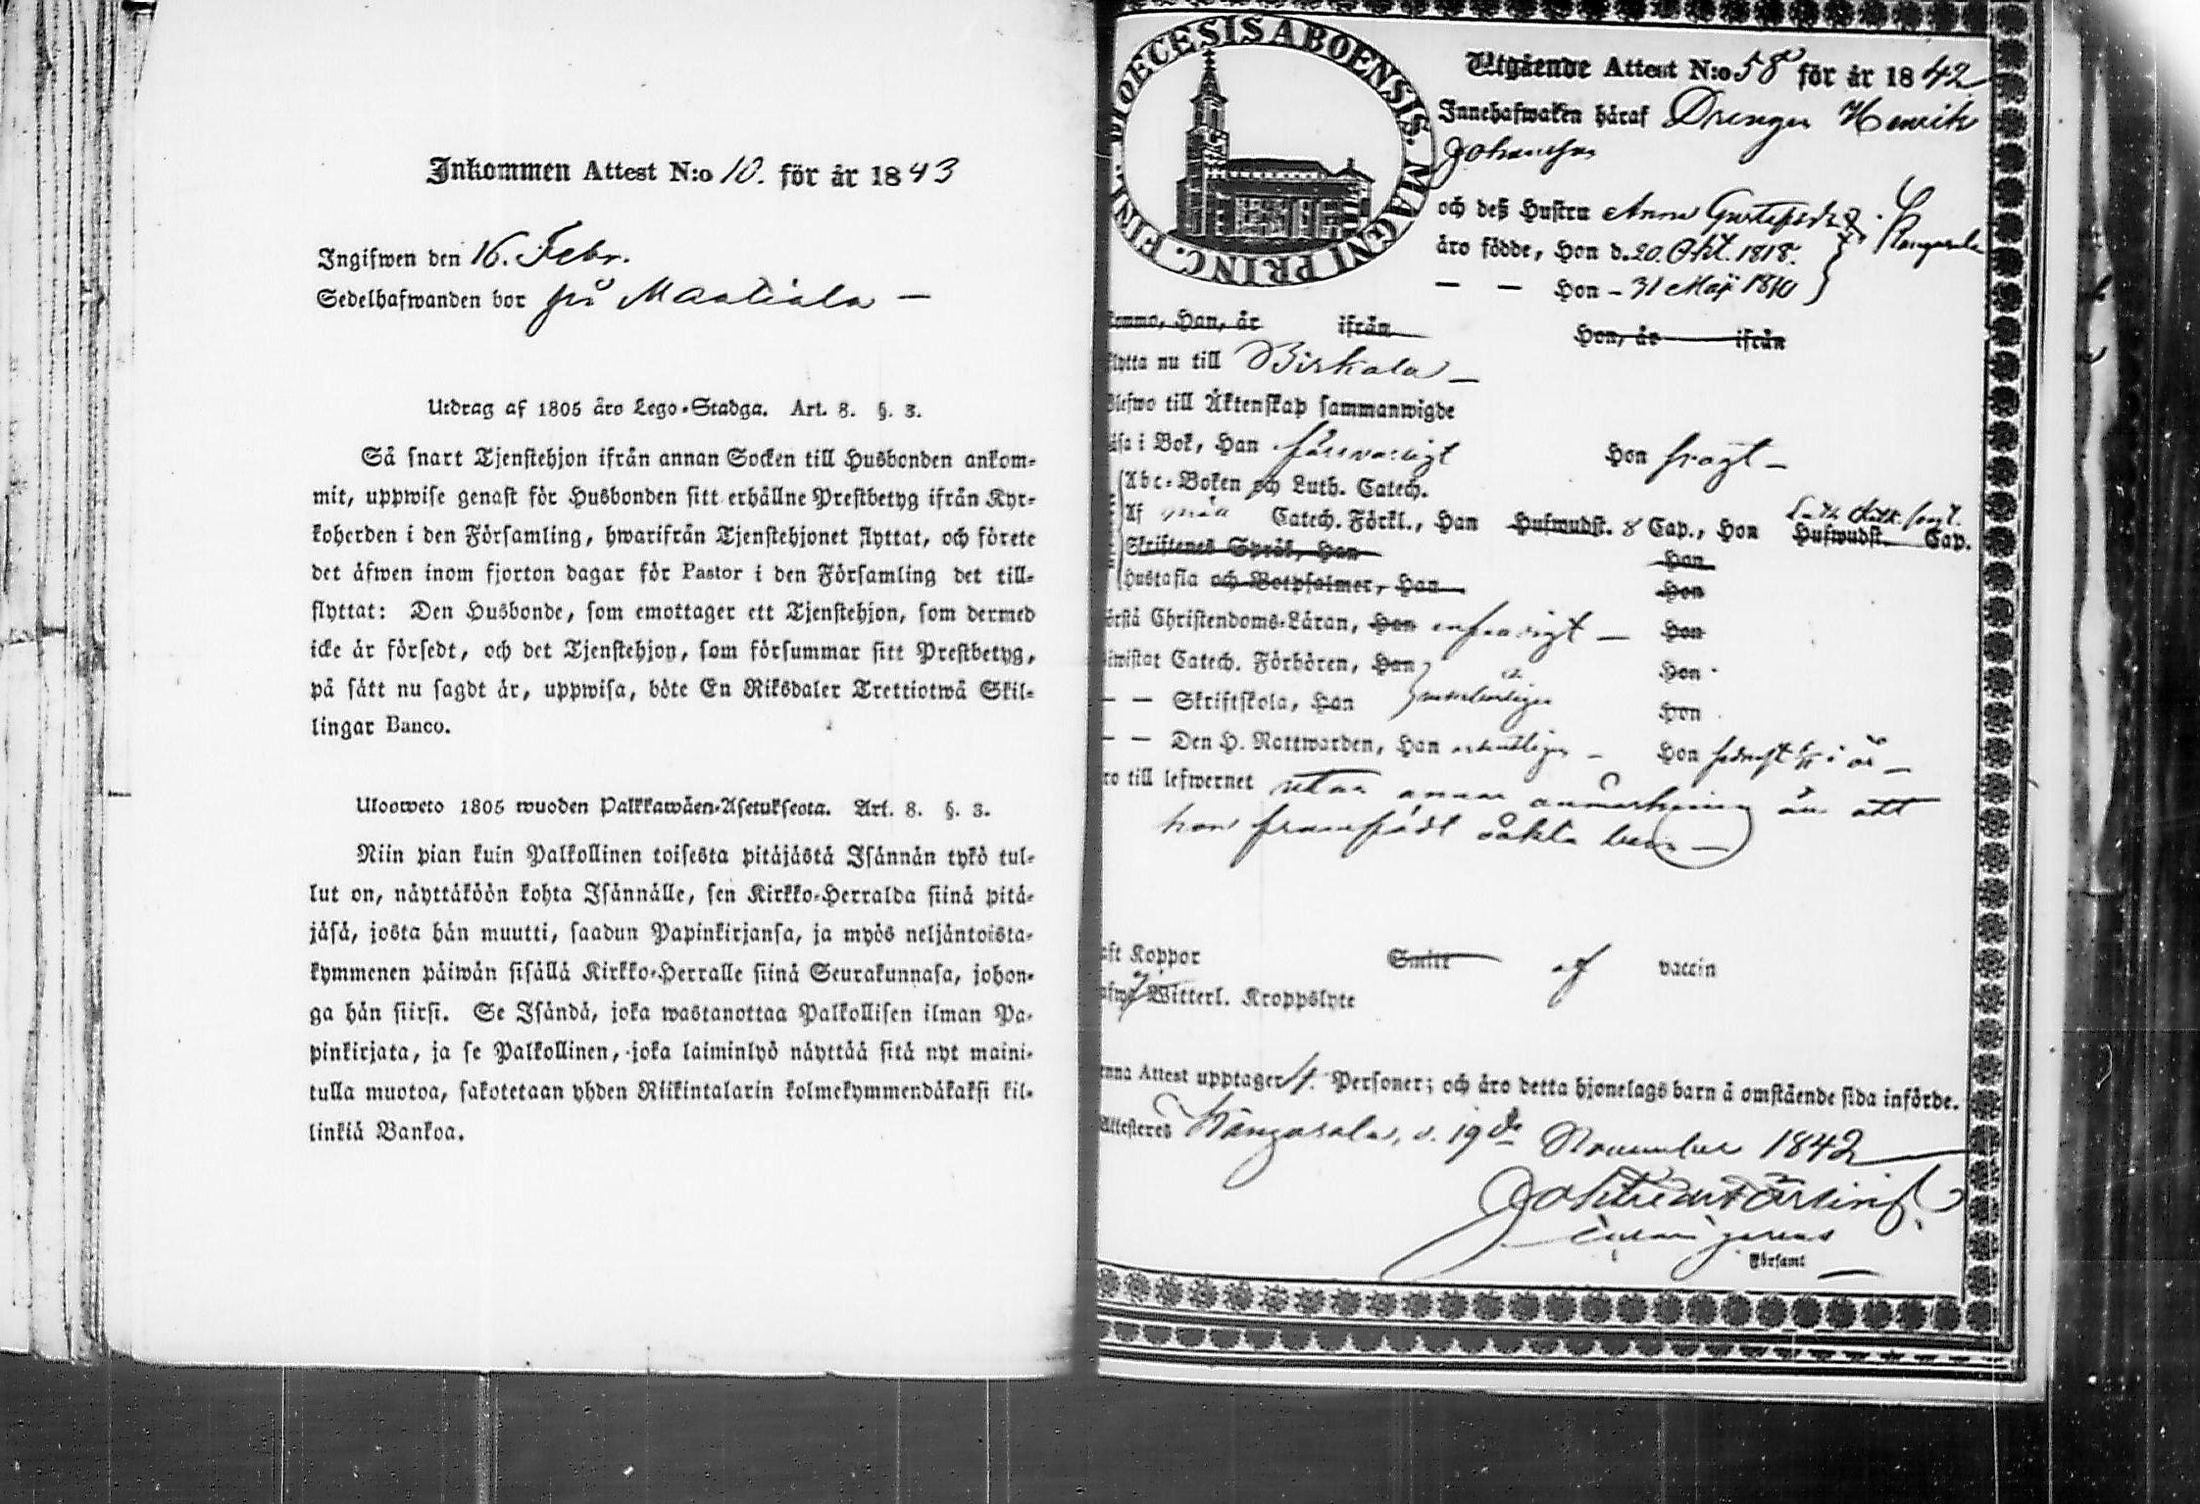 Inkommen Attest N:o 10. för år 1843
Ingifwen den 16. Febr.
Sedelhafwanden bor på Maatiala —
Utdrag af 1805 års Lego-Stadga. Art. 8. §. 3.
Så snart Tjenstehjon ifrån annan Socken till Husbonden ankom-
mit, uppwise genast för Husbonden sitt erhållne Prestbetyg ifrån Kyr-
koherden i den Församling, hwarifrån Tjenstehjonet flyttat, och förete
det äfwen inom fjorton dagar för Pastor i den Församling det till-
flyttat: Den Husbonde, som emottager ett Tjenstehjon, som dermed
icke är försedt, och det Tjenstehjon, som försummar sitt Prestbetyg,
på sätt nu sagdt är, uppwisa, böte En Riksdaler Trettiotwå Skil-
lingar Banco.
Uloosweto 1805 wuoden Palkkawäen-Asetuksesta. Art. 8. §. 3.
Niin pian kuin Palkollinen toisesta pitäjästä Isännän tykö tul-
lut on, näyttäköön kohta Isännälle, sen Kirkko-Herralda siinä pitä-
jäsä, josta hän muutti, saadun Papinkirjansa, ja myös neljäntoista-
kymmenen päiwän sisällä Kirkko-Herralle siinä Seurakunnasa, johon-
ga hän siirsi. Se Isändä, joka wastanottaa Palkollisen ilman Pa-
pinkirjata, ja se Palkollinen, joka laiminlyö näyttää sitä nyt maini-
tulla muotoa, sakotetaan yhden Riikintalarin kolmekymmendäkaksi kil-
linkiä Bankoa.
DIOECESIS ABOENSIS. MAGNI PRINC. FINL.
Utgående Attest N:o 58 för år 1842
Innehafwaren häraf Drengen Henrik
Johansson
och deß Hustru Anna Gustafsdr
äro födde, Hon d. 20. Okt. 1818.
— — Hon - 31 Maji 1810
Kangasala
komma, Han, år ifrån Hon, år ifrån
flytta nu till Birkala —
Blefwo till Äktenskap sammanwigde
läsa i Bok, Han försvarligt Hon svagt —
Abc-Boken och Luth. Catech.
Af Catech. Förkl., Han Hufwudst. 8 Cap., Hon Hufwudst. Cap.
Luth. Cath. svagt.
Skriftenes Språk, Han Hon
Hustafla och Botpsalmer, Han Hon
förstå Christendoms-Läran, Han enfaldigt — Hon
biwistat Catech. Förhören, Han Hon
— — Skriftskola, Han Hon
— — Den H. Nattwarden, Han ordentligen — Hon i år —
äro till lefwernet utan annan anmärkning än att
hon framfödt oäkta barn —
haft Koppor Smitt af vaccin
hafwa ej Witterl. Kroppslyte
Denna Attest upptager 4. Personer; och äro detta hjonelags barn å omstående sida införde.
Attesteres Kangasala, d. 19de November 1842
Församl